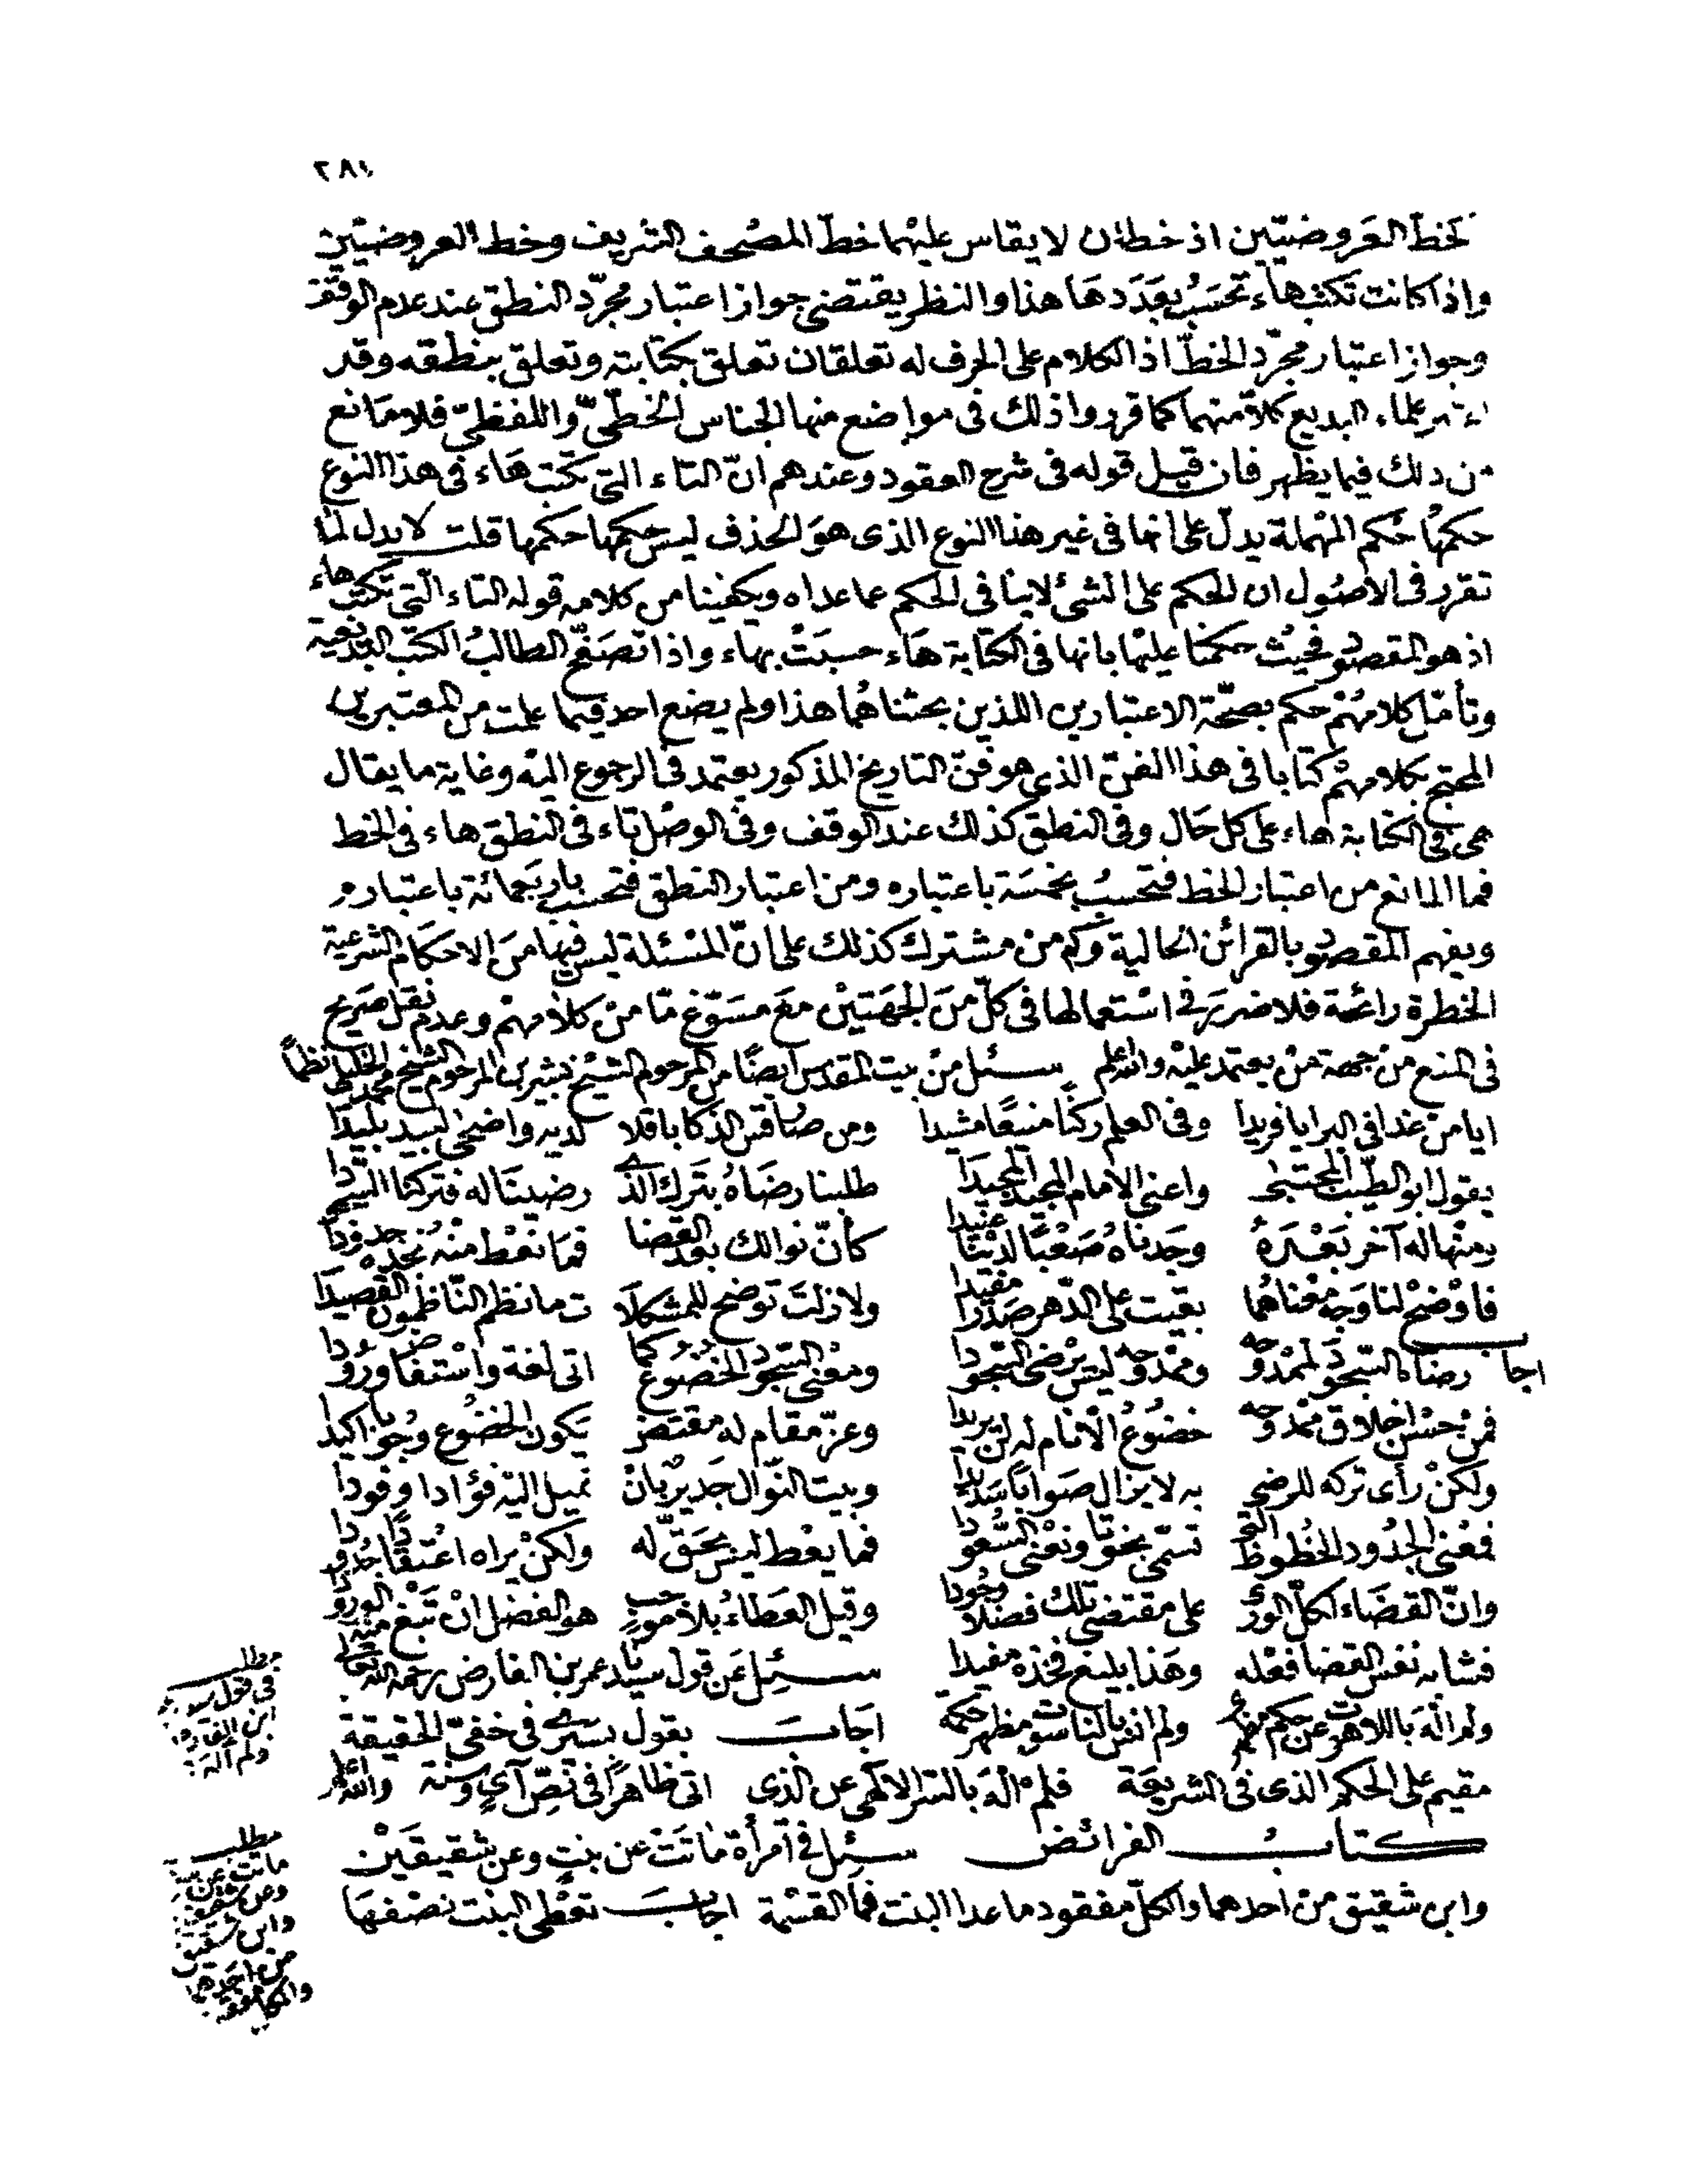 ٢٨١
لخط العَروضيّين اذ خطان لا يقاس عليْهما خطّ المصْحف الشريف وخط العروضيّين
واذا كانت تكتب هاء تحسَبُ بعَدَدهَا هذا والنظر يقتضى جواز اعتبار مجرّد النطق عند علام الوقف
وجواز اعتبار مجرّد الخطّ اذ الكلام على الحرف له تعلقان تعلق بكتابته وتعلق بنطقه وقد
علماء البديع كلاّ منهما كما قرروا ذلك فى مواضع منها الجناس الخطّىّ واللفظىّ فلا مَانع
من ذلك فيما يظهر فان قيل قوله فى شرح العقود وعندهم انّ التاء التى تكتب هَاء فى هذا النوع
حكمهَا حُكم المهْملة يدلّ على انها فى غير هذا النوع الذى هوَ الحذف ليس حكمها حكمها قلت لا يدل لما
تقرر فى الاصُول ان الحكم على الشئ لا ينافى الحكم عما عداه ويكفينا من كلامه قوله التاء الّتى تكتب هاء
اذ هو المقصود فحيْث حكمنا عليْها بانها فى الكتابة هَاء حسبَتْ بهاء واذا تصَفّح الطالبُ الكتب البديعية
وتأمّل كلامهُمْ حكم بصحّة الاعتبارين اللذين بحثناهُما هذا ولم يضع احد فيما علمت من المعتبرين
المحتج بكلامهمْ كتابا فى هذا الفنّ الذى هو فنّ التاريخ المذكور يعتمد فى الرجوع اليْه وغاية ما يقال
هى فى الكتابة هاء على كل حَال وفى النطق كذلك عند الوقف وفى الوصْل تاء فى النطق هاء فى الخط
فما المانع من اعتبار الخط فتحسبُ بخمسَة باعتباره ومن اعتبار النطق فتحسب باربَعمائة باعتباره
ويفهم المقصود بالقرائن الحالية وكم منْ مشترك كذلك على انّ المسْئلة ليس فيها منَ الاحكام الشرعية
الخطرة رائحة فلا ضررَ فى اسْتعمالها فى كلّ منَ الجهَتيْن معَ مسَوّغ مّا منْ كلامهمْ وعدم نقل صَريح
فى المنع من جهة منْ يعتمد عليْه والله اعلم سئل منْ بيت المقدس ايضًا من المرحوم الشيْخ بشير بن المرحوم الشيخ محمد الخليلى نظماً
ايا منْ غدا فى البرايا فريدا وفى العلم ركنًا منيعًا مشيدا ومن صار قسّ الذكا باقلا لديه واضحى لبيد بليدا
يقول ابو الطيّب المجتبى واعنى الامام المجيد المجيدا طلبنا رضَاهُ بترك الذى رضينَا له فتركنا السّجودا
بمنْهاله آخر بَعْدَهُ وجَدناهُ صَعْبًا لديْنَا عنيدا كأنّ نوالك بعْد القضا فمَا نعْط منْهُ نجدْه جدودا
فاوْضحْ لنا وَجه معْناهُما بقيت على الدّهر صَدْرًا مفيدا ولا زلتَ توْضح للمشكلا ت ما نظم النّاظمون القصيدَا
اجاب رضَاك السّجودَ لممْدوحه وممْدوحه ليس يرْضى السّجودا ومعْنى السّجود الخضُوعُ كما اتى لغة واسْتفاض ورودا
فمنْ حسْن اخلاق ممْدوحه خضُوعُ الانام له لنْ يريدا وعزّ مقام له مقتضٍ يكون الخضُوع وجُوبا اكيدا
ولكنْ رأى تركه للرضى به لا يزال صَوابًا سَديدا وبيت النّوال جَديرٌ بانْ تميل اليْه فؤادا وفودا
فمعْنى الجدُود الحُظوظ التى تسَمّى بخوتا ونعْنى السّعودا فما يعْط ليس بحَقّ له ولكنْ يراه اعْتقادًا جُدودا
وانّ القضَاء لكلّ الورى على مقتضى تلك فضلا وجُودا وقيل العَطَاءُ بلا موجب هو الفضل انْ تبْغ منْه الورودا
فشابه نفس القضا فعْله وهَذا بليغ فخذه مفيدا سئل عَن قول سيّد عمر بن الفارض رحمه الله تعالى
ولم الهَ باللاهوت عن حكم مظهرى ولم انس بالناسوت مظهر حكمة اجَابَ بقول يسْرى فى خفىّ الحقيقة
مقيم على الحكم الذى فى الشريعَة فلم الهَ بالسّر الالهى عن الذى اتى ظاهرًا فى نصّ آي وسنة والله اعلم
كتابُ الفرائض سئِل فى امرأة ماتَتْ عن بنتٍ وعن شقيقَيْن
وابن شقيق منْ احدهما والكلّ مفقود ما عدا البنت فما القسْمة اجابَ تعْطى البنت نصْفهَا
مطلب
فى قول سيدى
ابن الفارض
ولم الهَ
مطلب
ماتت عن بنت
وعن شقيقين
وابن شقيق
من احدهما
والكل مفقود